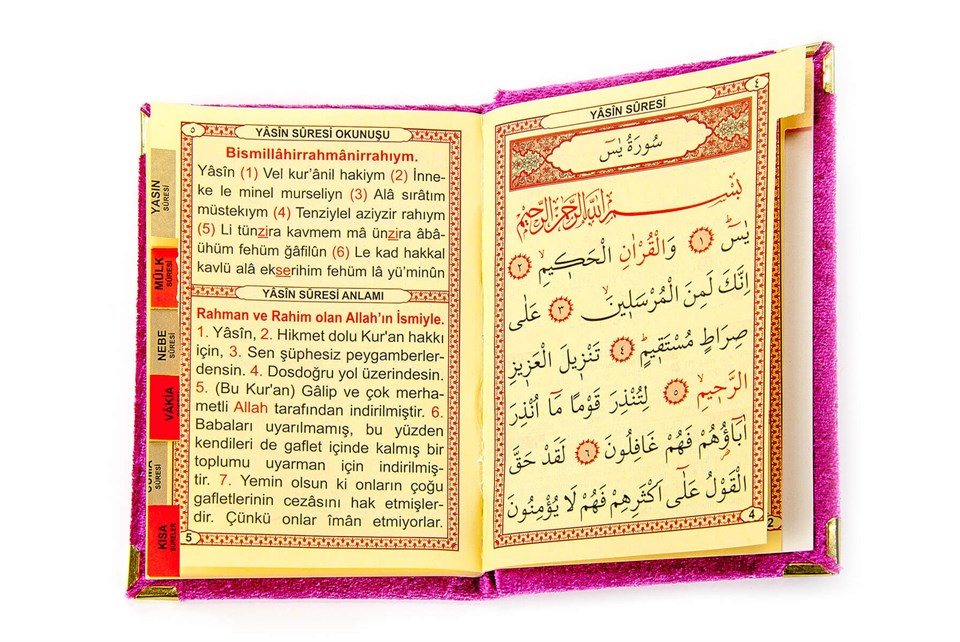 ٥
YÂSÎN SÛRESİ OKUNUŞU
Bismillâhirrahmânirrahıym.
Yâsîn (1) Vel kur’ânil hakiym (2) İnne-
ke le minel murseliyn (3) Alâ sırâtım
müstekıym (4) Tenziylel aziyzir rahıym
(5) Li tünzira kavmem mâ ünzira âbâ-
ühüm fehüm ğâfilûn (6) Le kad hakkal
kavlü alâ ekserihim fehüm lâ yü’minûn
YÂSÎN SÛRESİ ANLAMI
Rahman ve Rahim olan Allah’ın İsmiyle.
1. Yâsîn, 2. Hikmet dolu Kur'an hakkı
için, 3. Sen şüphesiz peygamberler-
densin. 4. Dosdoğru yol üzerindesin.
5. (Bu Kur'an) Gâlip ve çok merha-
metli Allah tarafından indirilmiştir. 6.
Babaları uyarılmamış, bu yüzden
kendileri de gaflet içinde kalmış bir
toplumu uyarman için indirilmiş-
tir. 7. Yemin olsun ki onların çoğu
gafletlerinin cezâsını hak etmişler-
dir. Çünkü onlar îmân etmiyorlar.
5
YASİN
SÛRESİ
MÜLK
SÛRESİ
NEBE
SÛRESİ
VÂKIA
CUMA
SÛRESİ
KISA
SÛRELER
٤
YÂSÎN SÛRESİ
سُورَةُ يٰسٓ
بِسْمِ اللّٰهِ الرَّحْمٰنِ الرَّحٖيمِ
يٰسٓ ۚ ﴿١﴾ وَالْقُرْاٰنِ الْحَكٖيمِۙ ﴿٢﴾
اِنَّكَ لَمِنَ الْمُرْسَلٖينَۙ ﴿٣﴾ عَلٰى
صِرَاطٍ مُسْتَقٖيمٍؕ ﴿٤﴾ تَنْزٖيلَ الْعَزٖيزِ
الرَّحٖيمِۙ ﴿٥﴾ لِتُنْذِرَ قَوْمًا مَٓا اُنْذِرَ
اٰبَٓاؤُ۬هُمْ فَهُمْ غَافِلُونَ ﴿٦﴾ لَقَدْ حَقَّ
الْقَوْلُ عَلٰٓى اَكْثَرِهِمْ فَهُمْ لَا يُؤْمِنُونَ
4
2